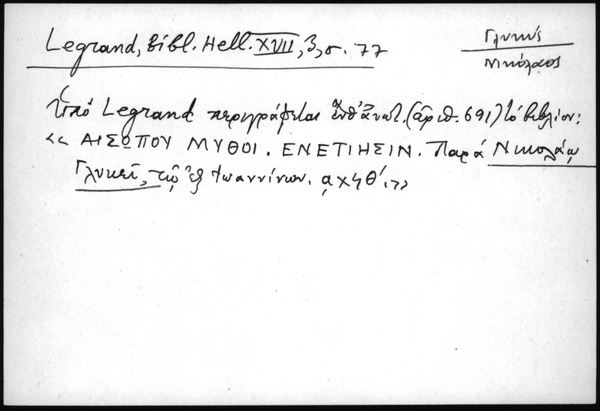 Legrand, Bibl. Hell. XVII, 3, σ. 77
Γλυκύς
Νικόλαος
Ὑπό Legrand περιγράφεται ἔνθ' ἀνωτ. (ἀριθ. 691) τό βιβλίον:
«ΑΙΣΩΠΟΥ ΜΥΘΟΙ. ΕΝΕΤΙΗΣΙΝ. Παρά Νικολάῳ
Γλυκεῖ, τῷ ἐξ Ἰωαννίνων. αχϟθ΄.»